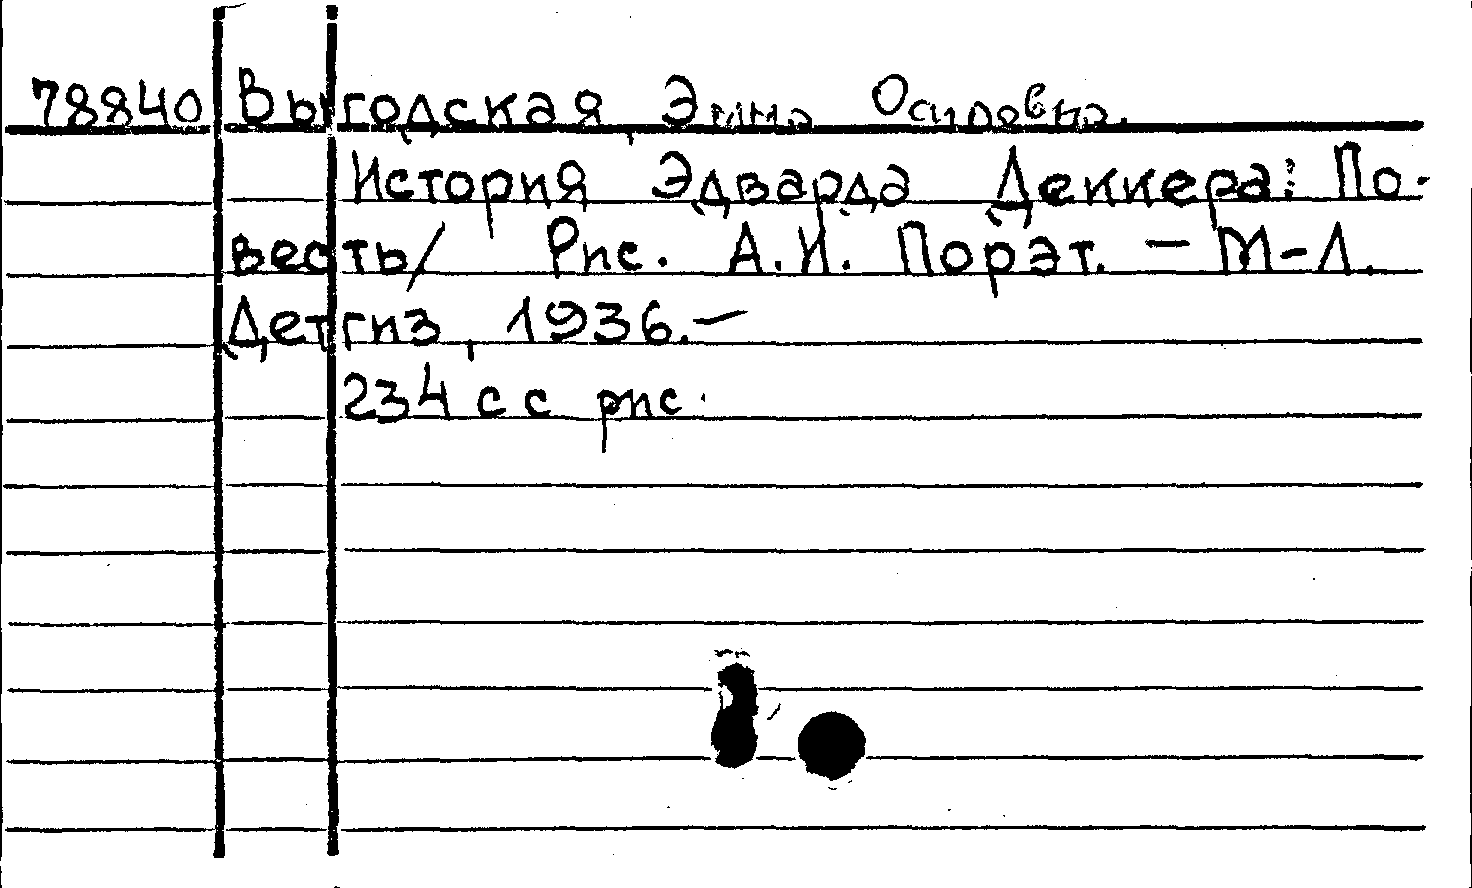 78840 Выгодская, Эмма Осиповна.
История Эдварда Деккера: По-
весть/ Рис. А.И. Порэт. — М-Л.
Детгиз, 1936.—
234 с с рис.